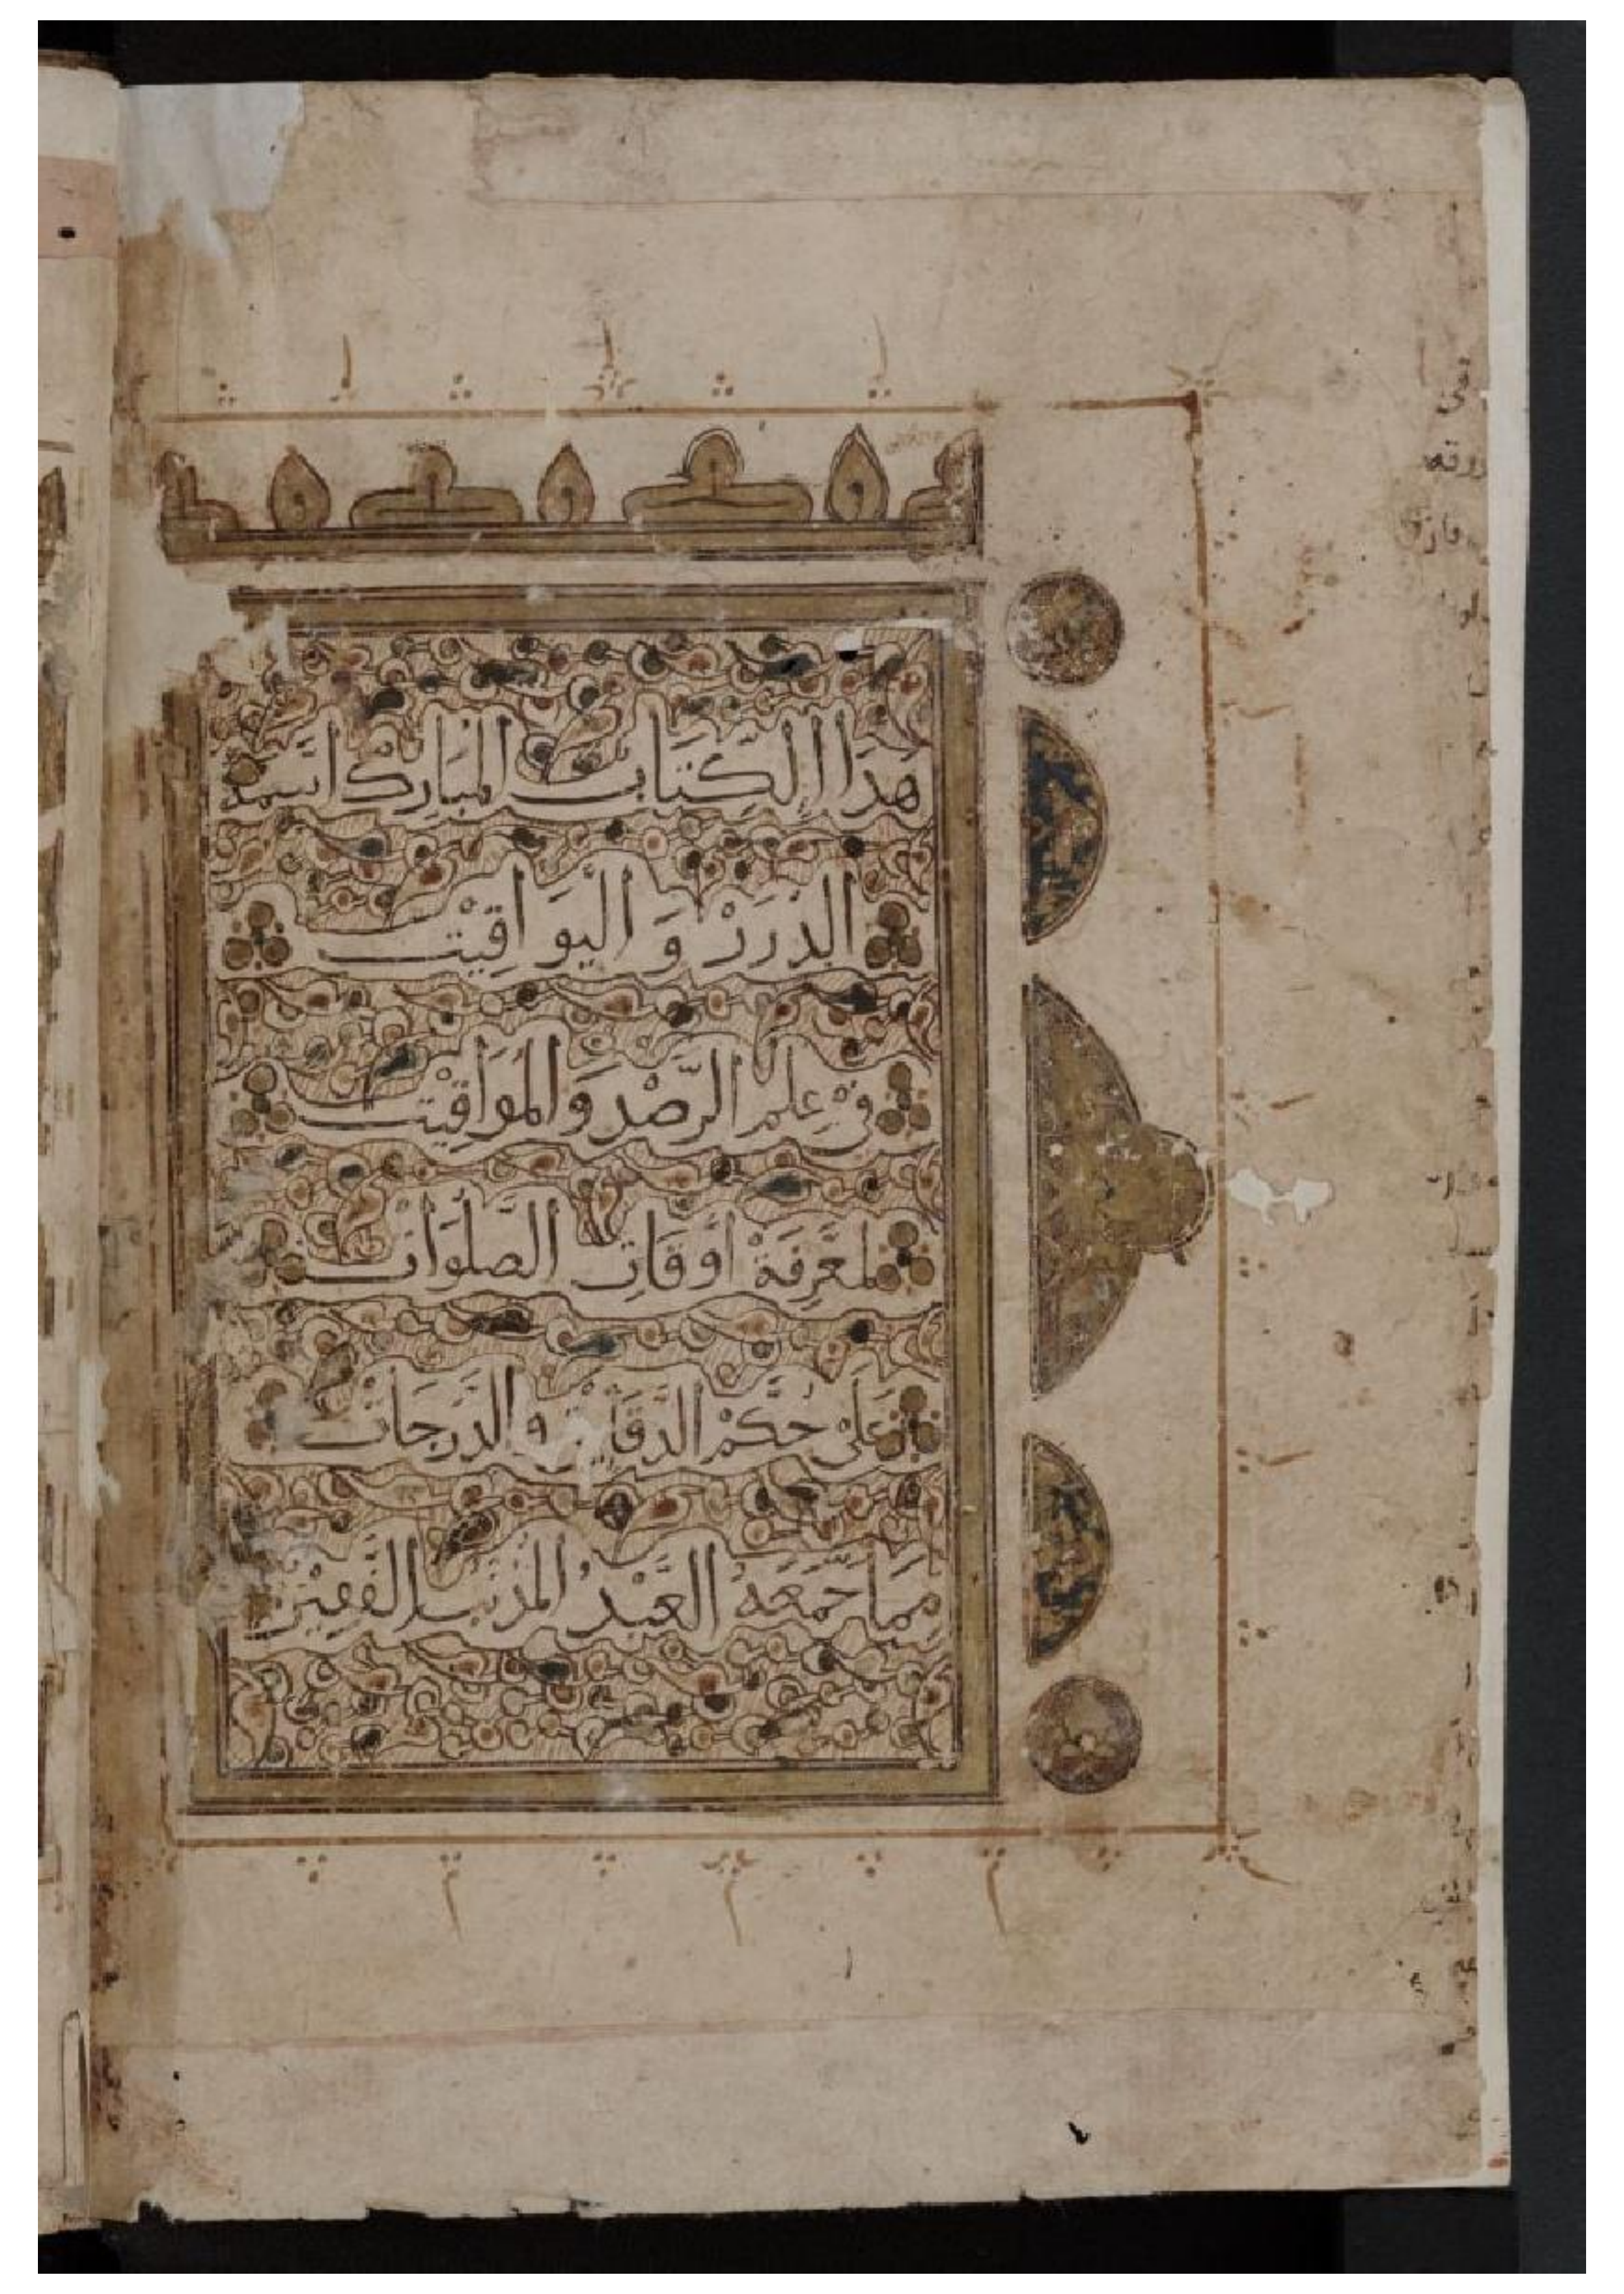 هذا الكتاب المبارك اسمه
الدُّرَرْ وَ اليَوَاقِيْت
فِيْ عِلمِ الرَّصْدِ وَالمَوَاقِيْت
لمَعْرِفَةْ أَوْقَاتِ الصَّلَوَاتْ
عَلَىْ حُكْمْ الدَّقَايِقْ والدَّرَجَاتْ
مِمَا جَمَعَهُ العَبْدُ المُذْنبُ الفَقِيْرْ